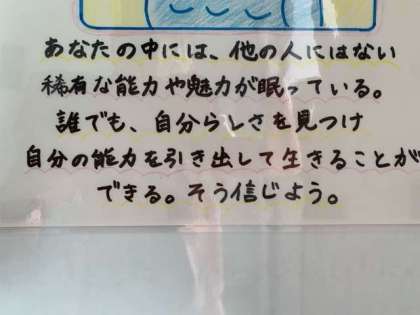 あなたの中には、他の人にはない
稀有な能力や魅力が眠っている。
誰でも、自分らしさを見つけ
自分の能力を引き出して生きることが
できる。そう信じよう。